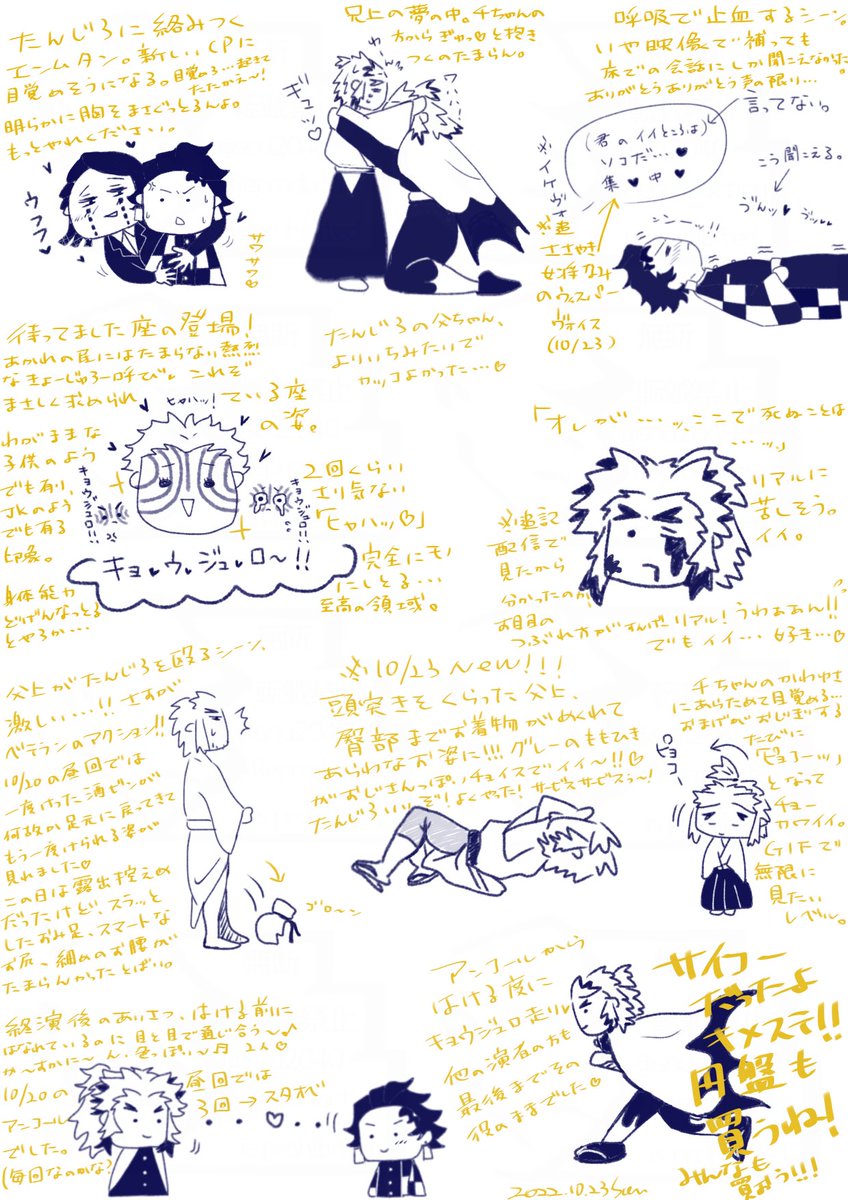 たんじろに絡みつく
エンムタン。新しいCPに
目覚めそうになる。目覚めろ…起きて
たたかえ〜!
明らかに胸をまさぐっとるんよ。
もっとやれください。
ウフフ
サワサワ
兄上の夢の中。千ちゃんの
方からぎゅっ♡と抱き
つくのたまらん。
ギュッ♡
たんじろの父ちゃん、
よりいちみたいで
カッコよかった…♡
呼吸で止血するシーン。
いや映像で補っても
床での会話にしか聞こえなかった
ありがとうありがとう声の限り…
言ってない。
(君のイイところは)
ソコだ…♥
集♥中♥
※イケヴォ
こう聞こえる。
ゔんッ♥ ゔッ
シンーッ!!
※追
ささやき
女将なみ
のウィスパー
ヴォイス
(10/23)
待ってました座の登場!
あかれの民にはたまらない熱烈
なきょーじゅろー呼び♥これぞ
まさしく求められている座
の姿。
ヒャハッ!
わがままな
子供のよう
でも有り、
JKのよう
でも有る
印象。
キョウジュロ!!
キョウジュロ!!
キョ♥ウ♥ジュ♥ロ〜!!
身体能力
どげんなっとる
とやろか…
2回くらい
さり気ない
「ヒャハッ♡」
完全にモノ
にしとる…
至高の領域。
「オレが…ッ、ここで死ぬことは
…ッ」
リアルに
苦しそう。
イイ。
※追記
配信で
見たから
分かったのが
お目目の
つぶれ方がすんげーリアル!うわぁぁん!!
でもイイ…好き…♡
父上がたんじろを殴るシーン、
激しい…!!さすが
ベテランのアクション!!
10/20の昼回では
一度けった酒ビンが
何故か足元に戻ってきて
もう一度けられる姿が
見れました♡
この日は露出控えめ
だったけど、スラッと
したおみ足、スマートな
お尻、細めのお腰が
たまらんかったとばい。
ゴローン
※10/23 NEW!!!
頭突きをくらった父上、
臀部までお着物がめくれて
あらわなお姿に!!!グレーのももひき
がおじさんっぽいチョイスでイイ〜!!♡
たんじろいいぞ!よくやった!サービスサービスぅ〜!
千ちゃんのかわゆさ
にあらためて目覚める…
おまげがおじぎする
たびに
「ピョコーッ」
となって
チョー
カワイイ。
GIFで
無限に
見たい
レベル。
ピョコー
終演後のあいさつ、はける前に
はなれているのに目と目で通じ合う〜♪
か〜すかに〜ん、色っぽい〜月 2人♡
10/20の昼回では
アンコール3回→スタオベ
でした。
(毎回なのかな?)
アンコールから
はける度に
キョウジュロ走り♥
他の演者の方も
最後までその
役のままでした♡
サイコー
だったよ
キメステ!!
円盤も
買うね!
みんなも
買おう!!!
2022.10.23Sun